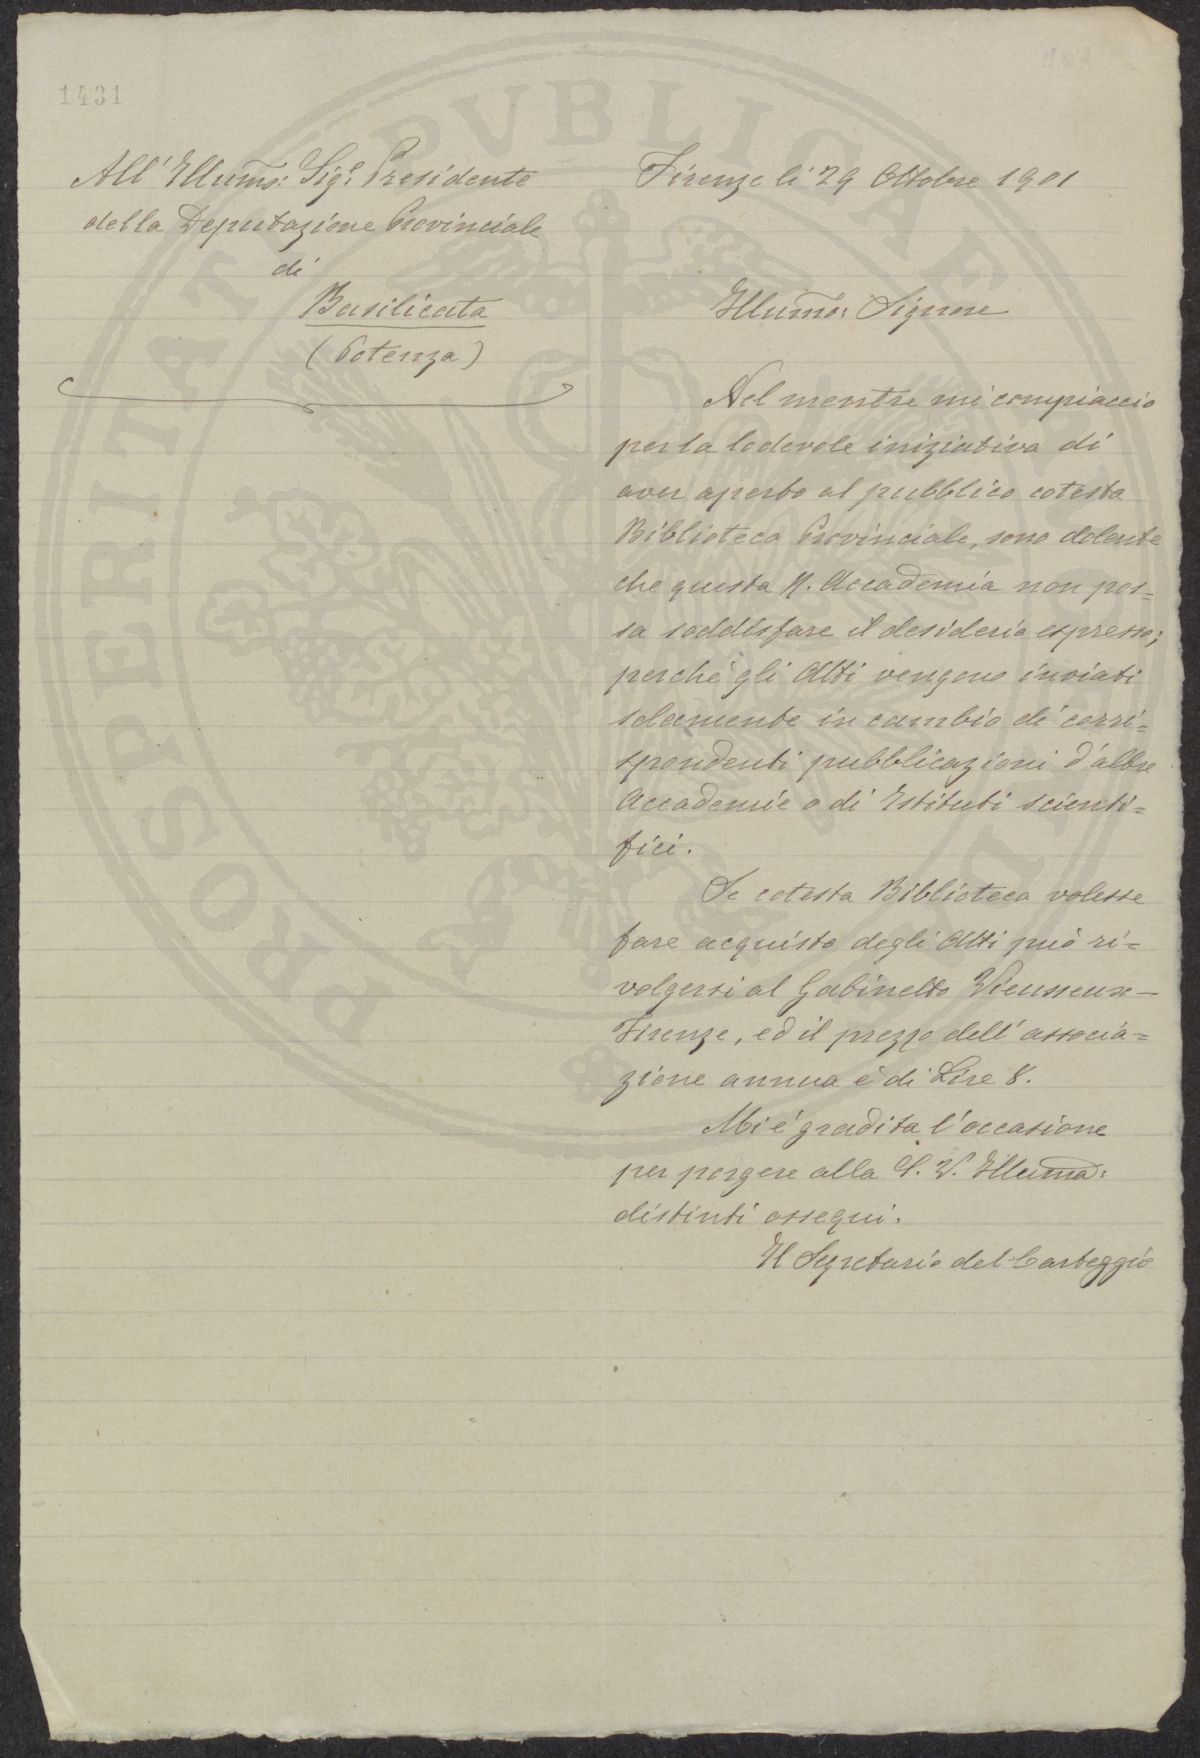 1431
All' Illumo: Sigr. Presidente
della Deputazione Provinciale
di
Basilicata
(Potenza)
Firenze li 29 Ottobre 1901
Illumo: Signore
Nel mentre mi compiaccio
per la lodevole iniziativa di
aver aperto al pubblico cotesta
Biblioteca Provinciale, sono dolente
che questa R. Accademia non pos=
sa soddisfare il desiderio espresso;
perchè gli Atti vengono inviati
solamente in cambio di corri=
spondenti pubblicazioni d'altre
Accademie o di Istituti scienti=
fici.
Se cotesta Biblioteca volesse
fare acquisto degli Atti può ri=
volgersi al Gabinetto Vieusseux—
Firenze, ed il prezzo dell'associa=
zione annua è di Lire 8.
Mi è gradita l'occasione
per porgere alla S. V. Illuma:
distinti ossequi.
Il Segretario del Carteggio
PROSPERITATI PVBLICAE